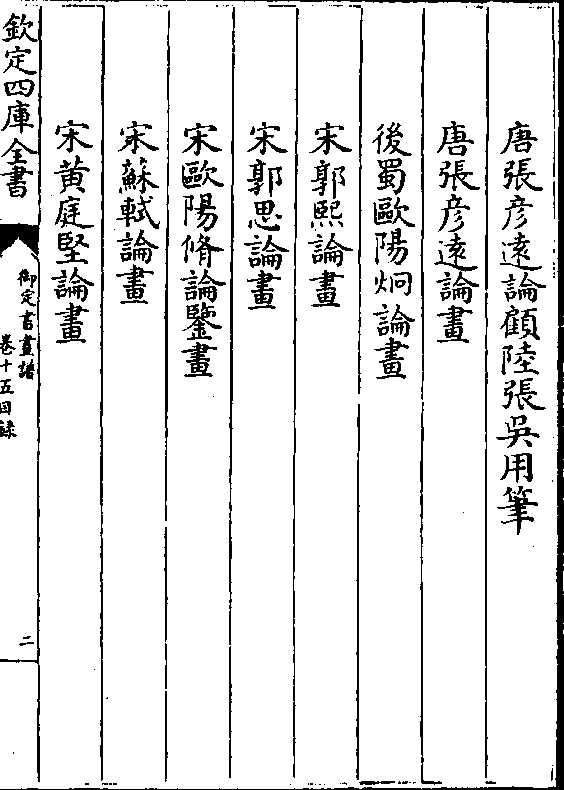 唐張彦遠論顧陸張吳用筆
唐張彦遠論畫
後蜀歐陽炯論畫
宋郭熙論畫
宋郭思論畫
宋歐陽脩論鑒畫
宋蘇軾論畫
宋黃庭堅論畫
欽定四庫全書
御定書畫譜
卷十五目録
二